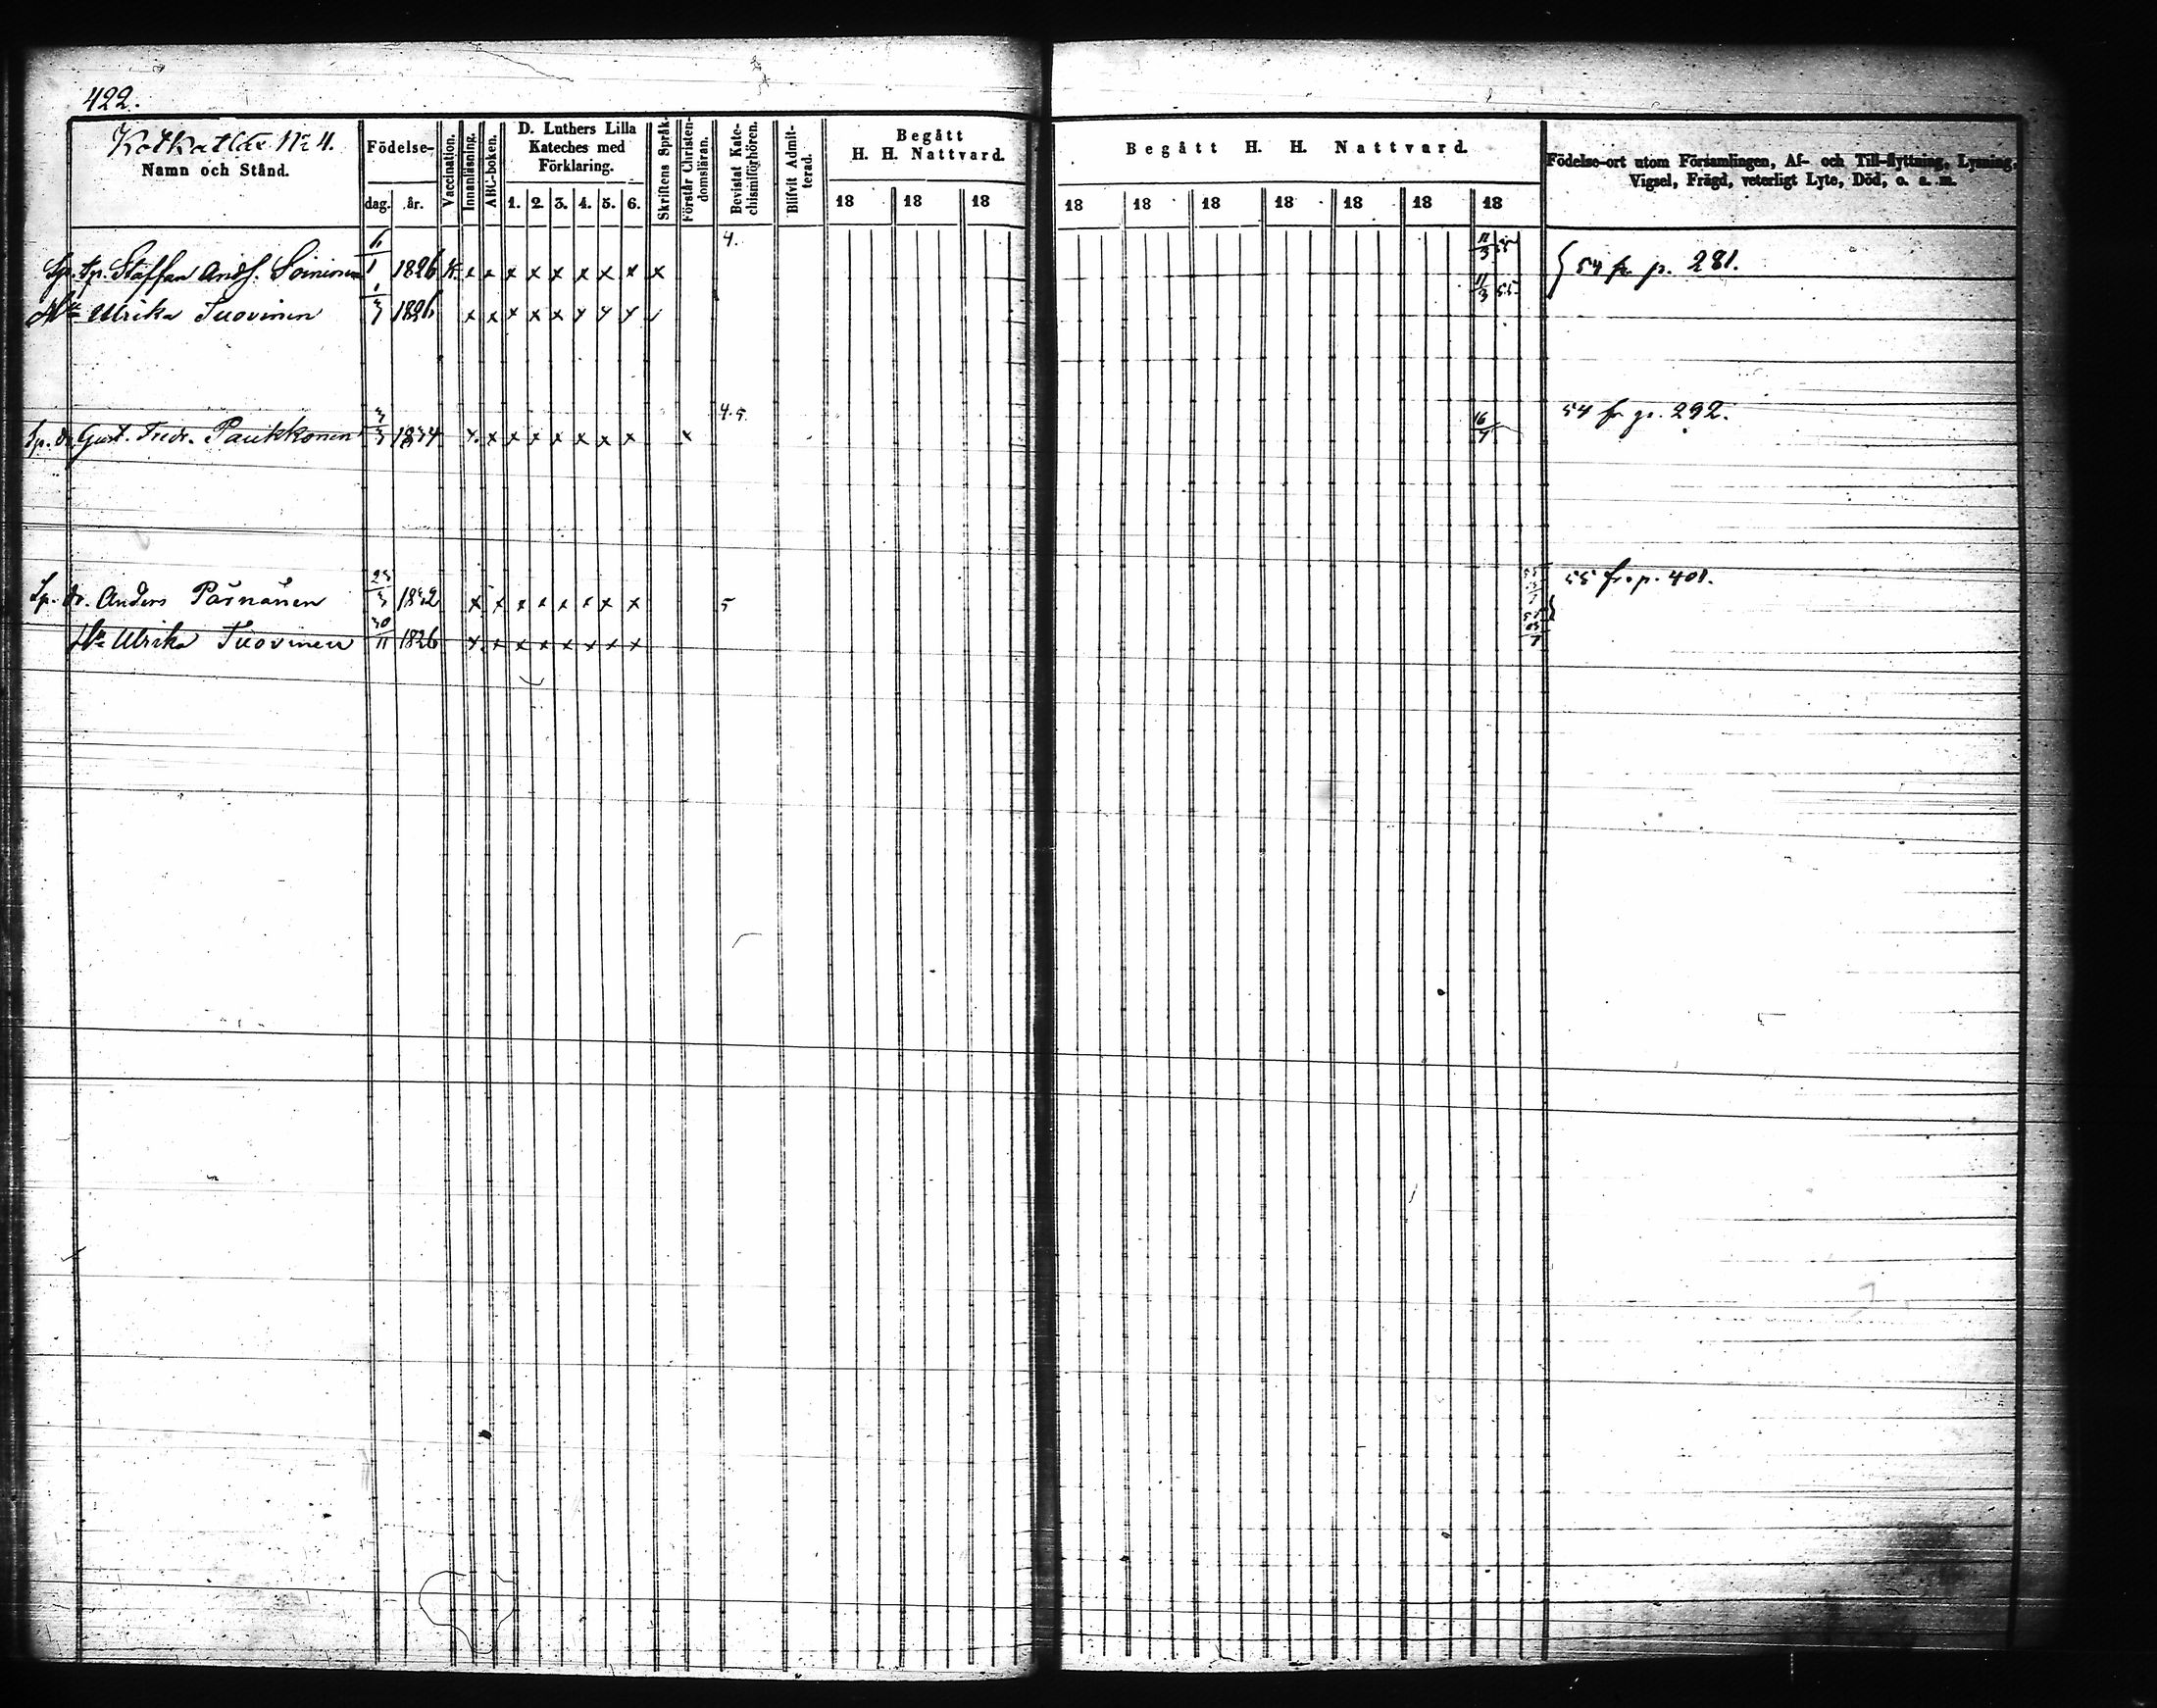 422.
Kotkatlax № 4.
Namn och Stånd.
Födelse-
dag. år.
Vaccination.
Innanläsning.
ABC-boken.
D. Luthers Lilla
Kateches med
Förklaring.
1. 2. 3. 4. 5. 6.
Skriftens Språk.
Förstår Christen-
domsläran.
Bevistat Kate-
chismiförhören.
Blifvit Admit-
terad.
Begått
H. H. Nattvard.
18 18 18
Begått H. H. Nattvard.
18 18 18 18 18 18 18
Födelse-ort utom Församlingen, Af- och Till-flyttning, Lysning,
Vigsel, Frägd, veterligt Lyte, Död, o. a. m.
Staffan Andf. Soininen 1826 x x x x x x x x x 4. 11/3 55 54 fr p. 281.
Ulrika Tuovinen 1826 x x x x x x 11/3 55
Gust. Fredr. Paukkonen 1834 x x x x x x x x x 4.5. 16 54 fr p. 292.
Sp. dr. Anders Pärnänen 1832 x x x x x x x x 5 55 fr. p. 401.
Hu Ulrika Tuovinen 30/11 1826 x x x x x x x x